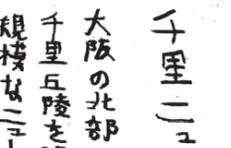 千里ニュ
大阪の北部
千里丘陵を
規模なニュー